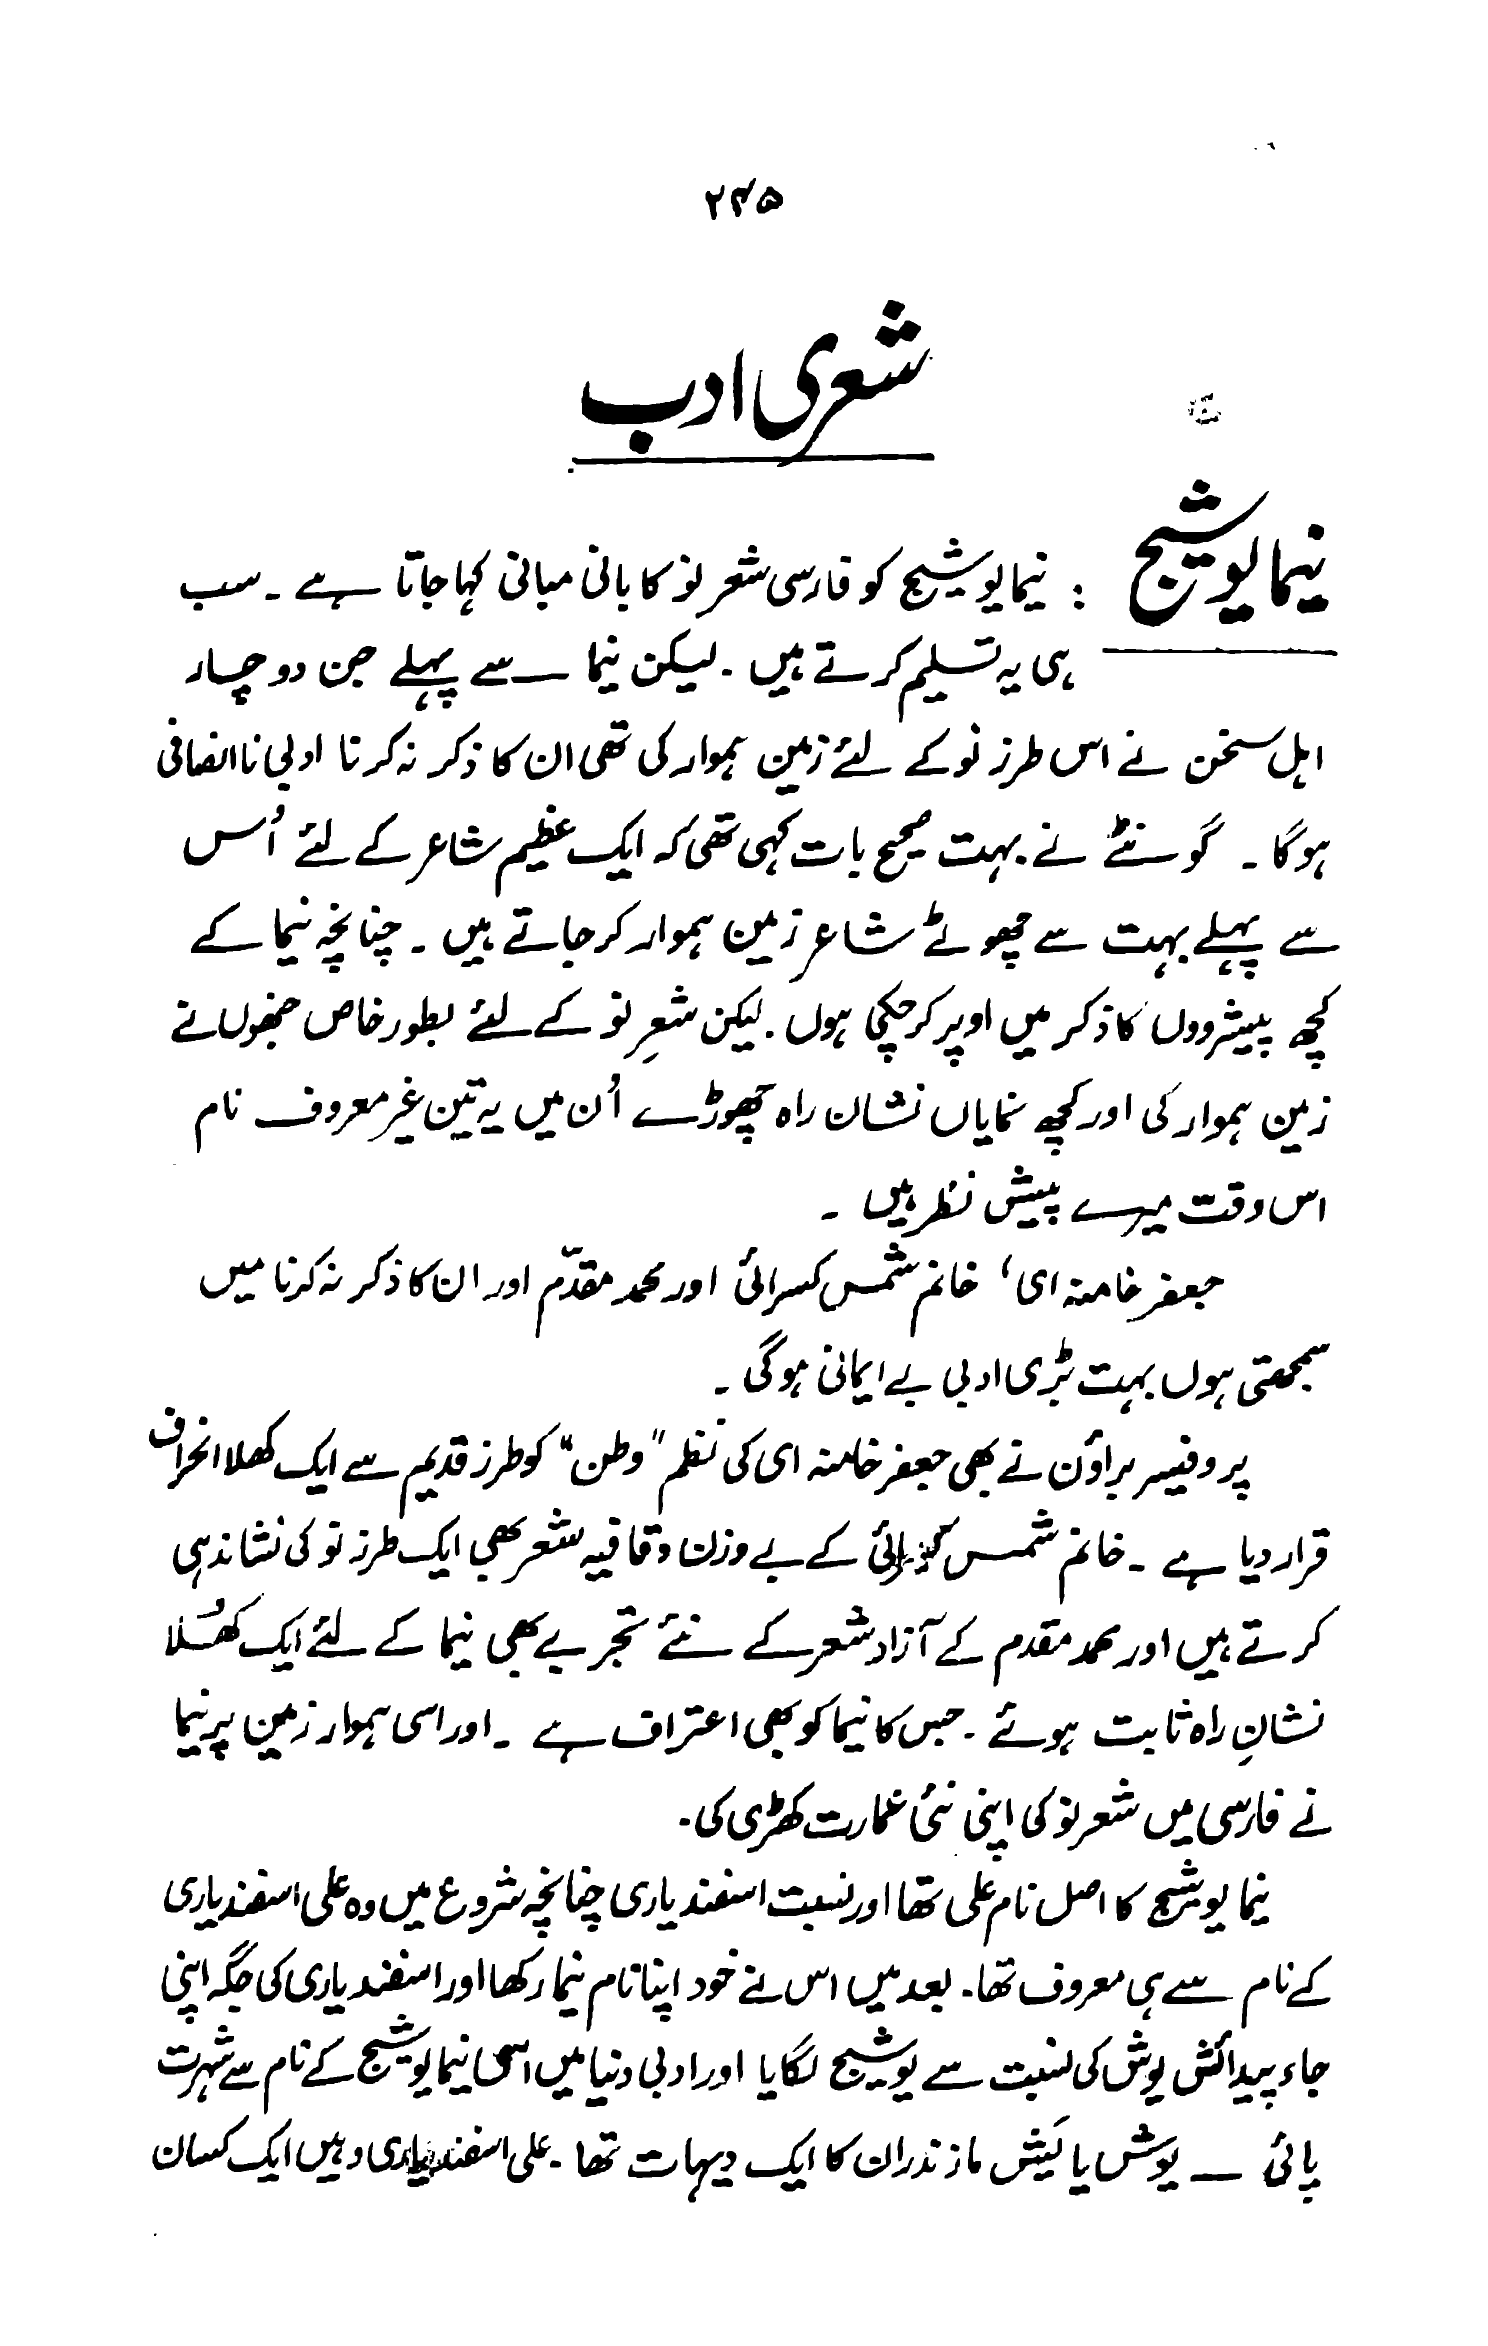 ۲۴۵
شعری ادب
نیما یوشیج : نیما یوشیج کو فارسی شعر نو کا بانی مبانی کہا جاتا ہے ۔ سب
ہی یہ تسلیم کرتے ہیں ۔ لیکن نیما سے پہلے جن دو چار
اہل سخن نے اس طرز نو کے لئے زمین ہموار کی تھی ان کا ذکر نہ کرنا ادبی ناانصافی
ہوگا ۔ گوئٹے نے بہت صحیح بات کہی تھی کہ ایک عظیم شاعر کے لئے اُس
سے پہلے بہت سے چھوٹے شاعر زمین ہموار کر جاتے ہیں ۔ چنانچہ نیما کے
کچھ پیشروؤں کا ذکر میں اوپر کر چکی ہوں ۔ لیکن شعرِ نو کے لئے بطور خاص جنھوں نے
زمین ہموار کی اور کچھ نمایاں نشان راہ چھوڑے اُن میں یہ تین غیر معروف نام
اس وقت میرے پیش نظر ہیں ۔
جعفر خامنہ ای، خانم شمس کسرائی اور محمد مقدّم اور ان کا ذکر نہ کرنا میں
سمجھتی ہوں بہت بڑی ادبی بے ایمانی ہوگی ۔
پروفیسر براؤن نے بھی جعفر خامنہ ای کی نظم "وطن" کو طرز قدیم سے ایک کھلا انحراف
قرار دیا ہے ۔ خانم شمس کسرائی کے بے وزن و قافیہ شعر بھی ایک طرز نو کی نشاندہی
کرتے ہیں اور محمد مقدم کے آزاد شعر کے نئے تجربے بھی نیما کے لئے ایک کھُلا
نشانِ راہ ثابت ہوئے ۔ جس کا نیما کو بھی اعتراف ہے ۔ اور اسی ہموار زمین پر نیما
نے فارسی میں شعر نو کی اپنی نئی عمارت کھڑی کی ۔
نیما یوشیج کا اصل نام علی تھا اور نسبت اسفندیاری چنانچہ شروع میں وہ علی اسفندیاری
کے نام سے ہی معروف تھا ۔ بعد میں اس نے خود اپنا نام نیما رکھا اور اسفندیاری کی جگہ اپنی
جاء پیدائش یوش کی نسبت سے یوشیج لگایا اور ادبی دنیا میں اسی نیما یوشیج کے نام سے شہرت
پائی ۔ یوش یا یَیش ماژندران کا ایک دیہات تھا ۔ علی اسفندیاری وہیں ایک کسان